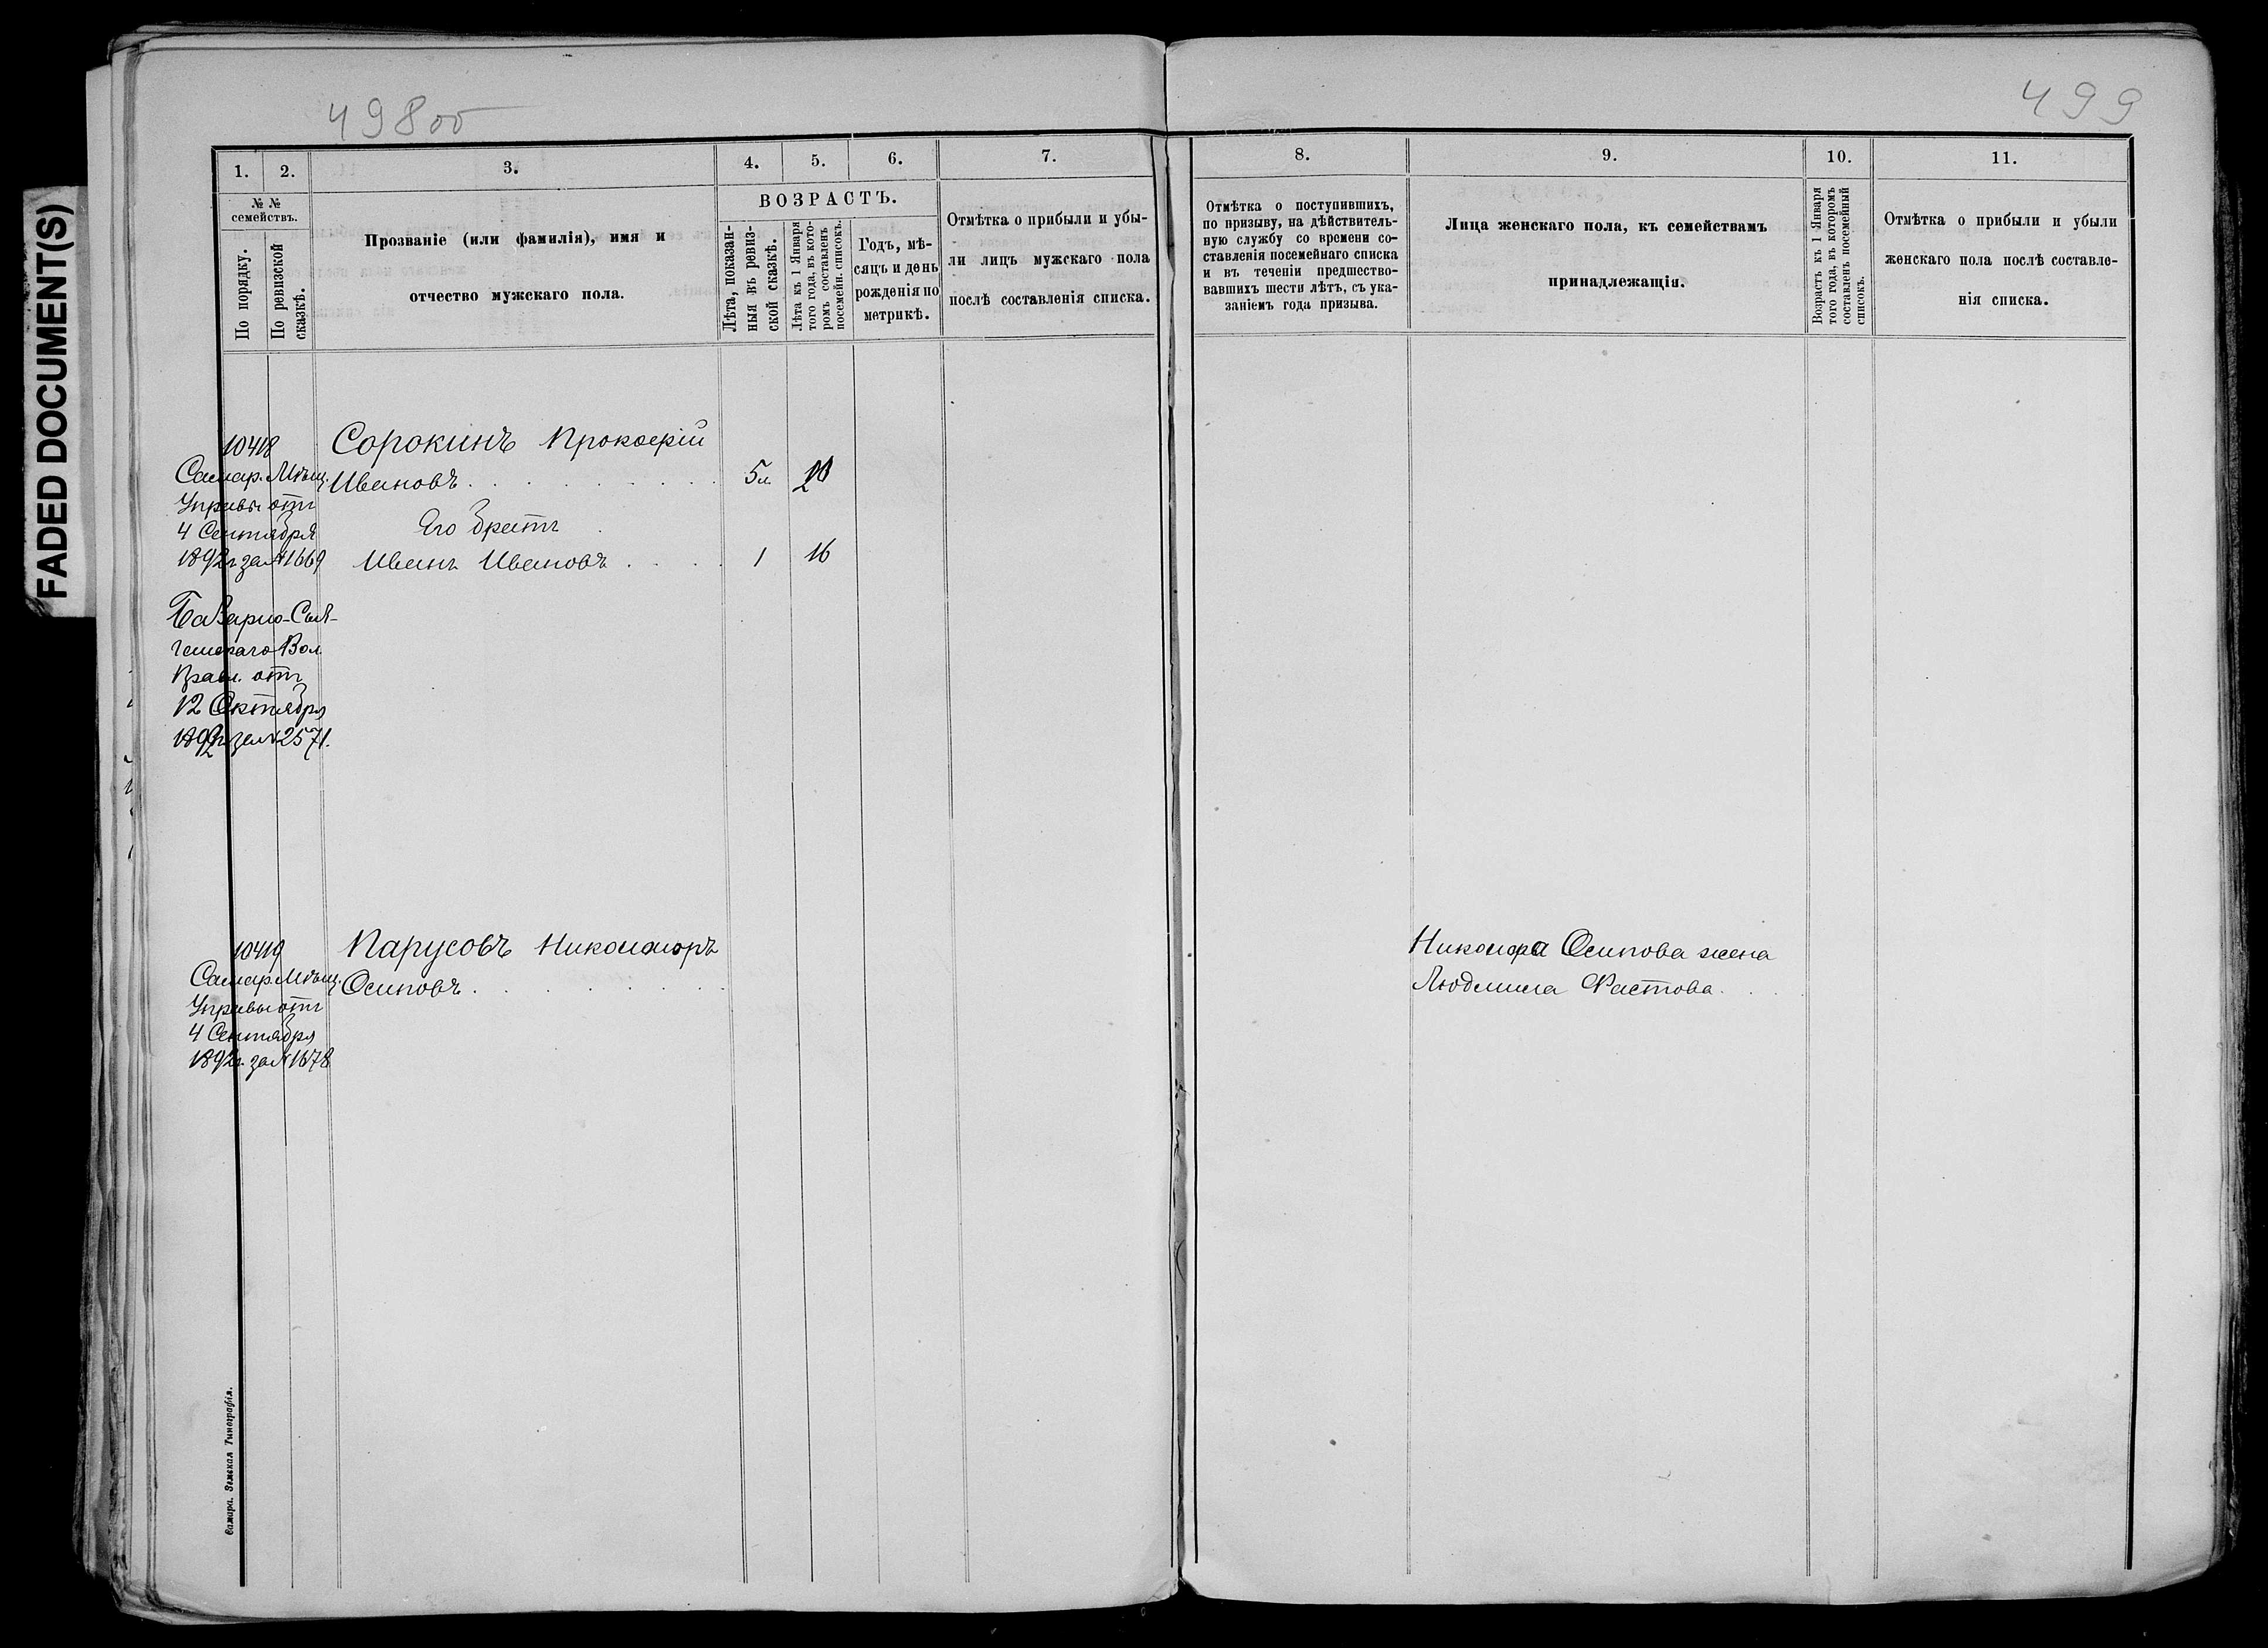 FADED DOCUMENT(S)
498об
499
1.
2.
3.
4.
5.
6.
7.
№ №
семействъ.
По порядку.
По ревизской
сказкѣ.
Прозваніе (или фамилія), имя и
отчество мужскаго пола.
ВОЗРАСТЪ.
Лѣта, показан-
ныя въ ревиз-
ской сказкѣ.
Лѣта къ 1 Января
того года, въ кото-
ромъ составленъ
посемейн. списокъ.
Годъ, мѣ-
сяцъ и день
рожденія по
метрикѣ.
Отмѣтка о прибыли и убы-
ли лицъ мужскаго пола
послѣ составленія списка.
8.
9.
10.
11.
Отмѣтка о поступившихъ,
по призыву, на дѣйствитель-
ную службу со времени со-
ставленія посемейнаго списка
и въ теченіи предшество-
вавшихъ шести лѣтъ, съ ука-
заніемъ года призыва.
Лица женскаго пола, къ семействамъ
принадлежащія.
Возрастъ къ 1 Января
того года, въ которомъ
составленъ посемейный
списокъ.
Отмѣтка о прибыли и убыли
женскаго пола послѣ составле-
нія списка.
10418
Самар. Мѣщ.
Управы отъ
4 Сентября
1892 г за № 1669
Сорокинъ Прокофій
Ивановъ 5 20
Его братъ
Иванъ Ивановъ 1 16
Вол.
Правл. отъ
12 Октября
1892 г за № 2571.
10419
Самар. Мѣщ.
Управы отъ
4 Сентября
1892 г. за № 1678
Парусовъ Никоноръ
Осиповъ
Никонора Осипова жена
Людмила Фастова
Самара. Земская Типографія.